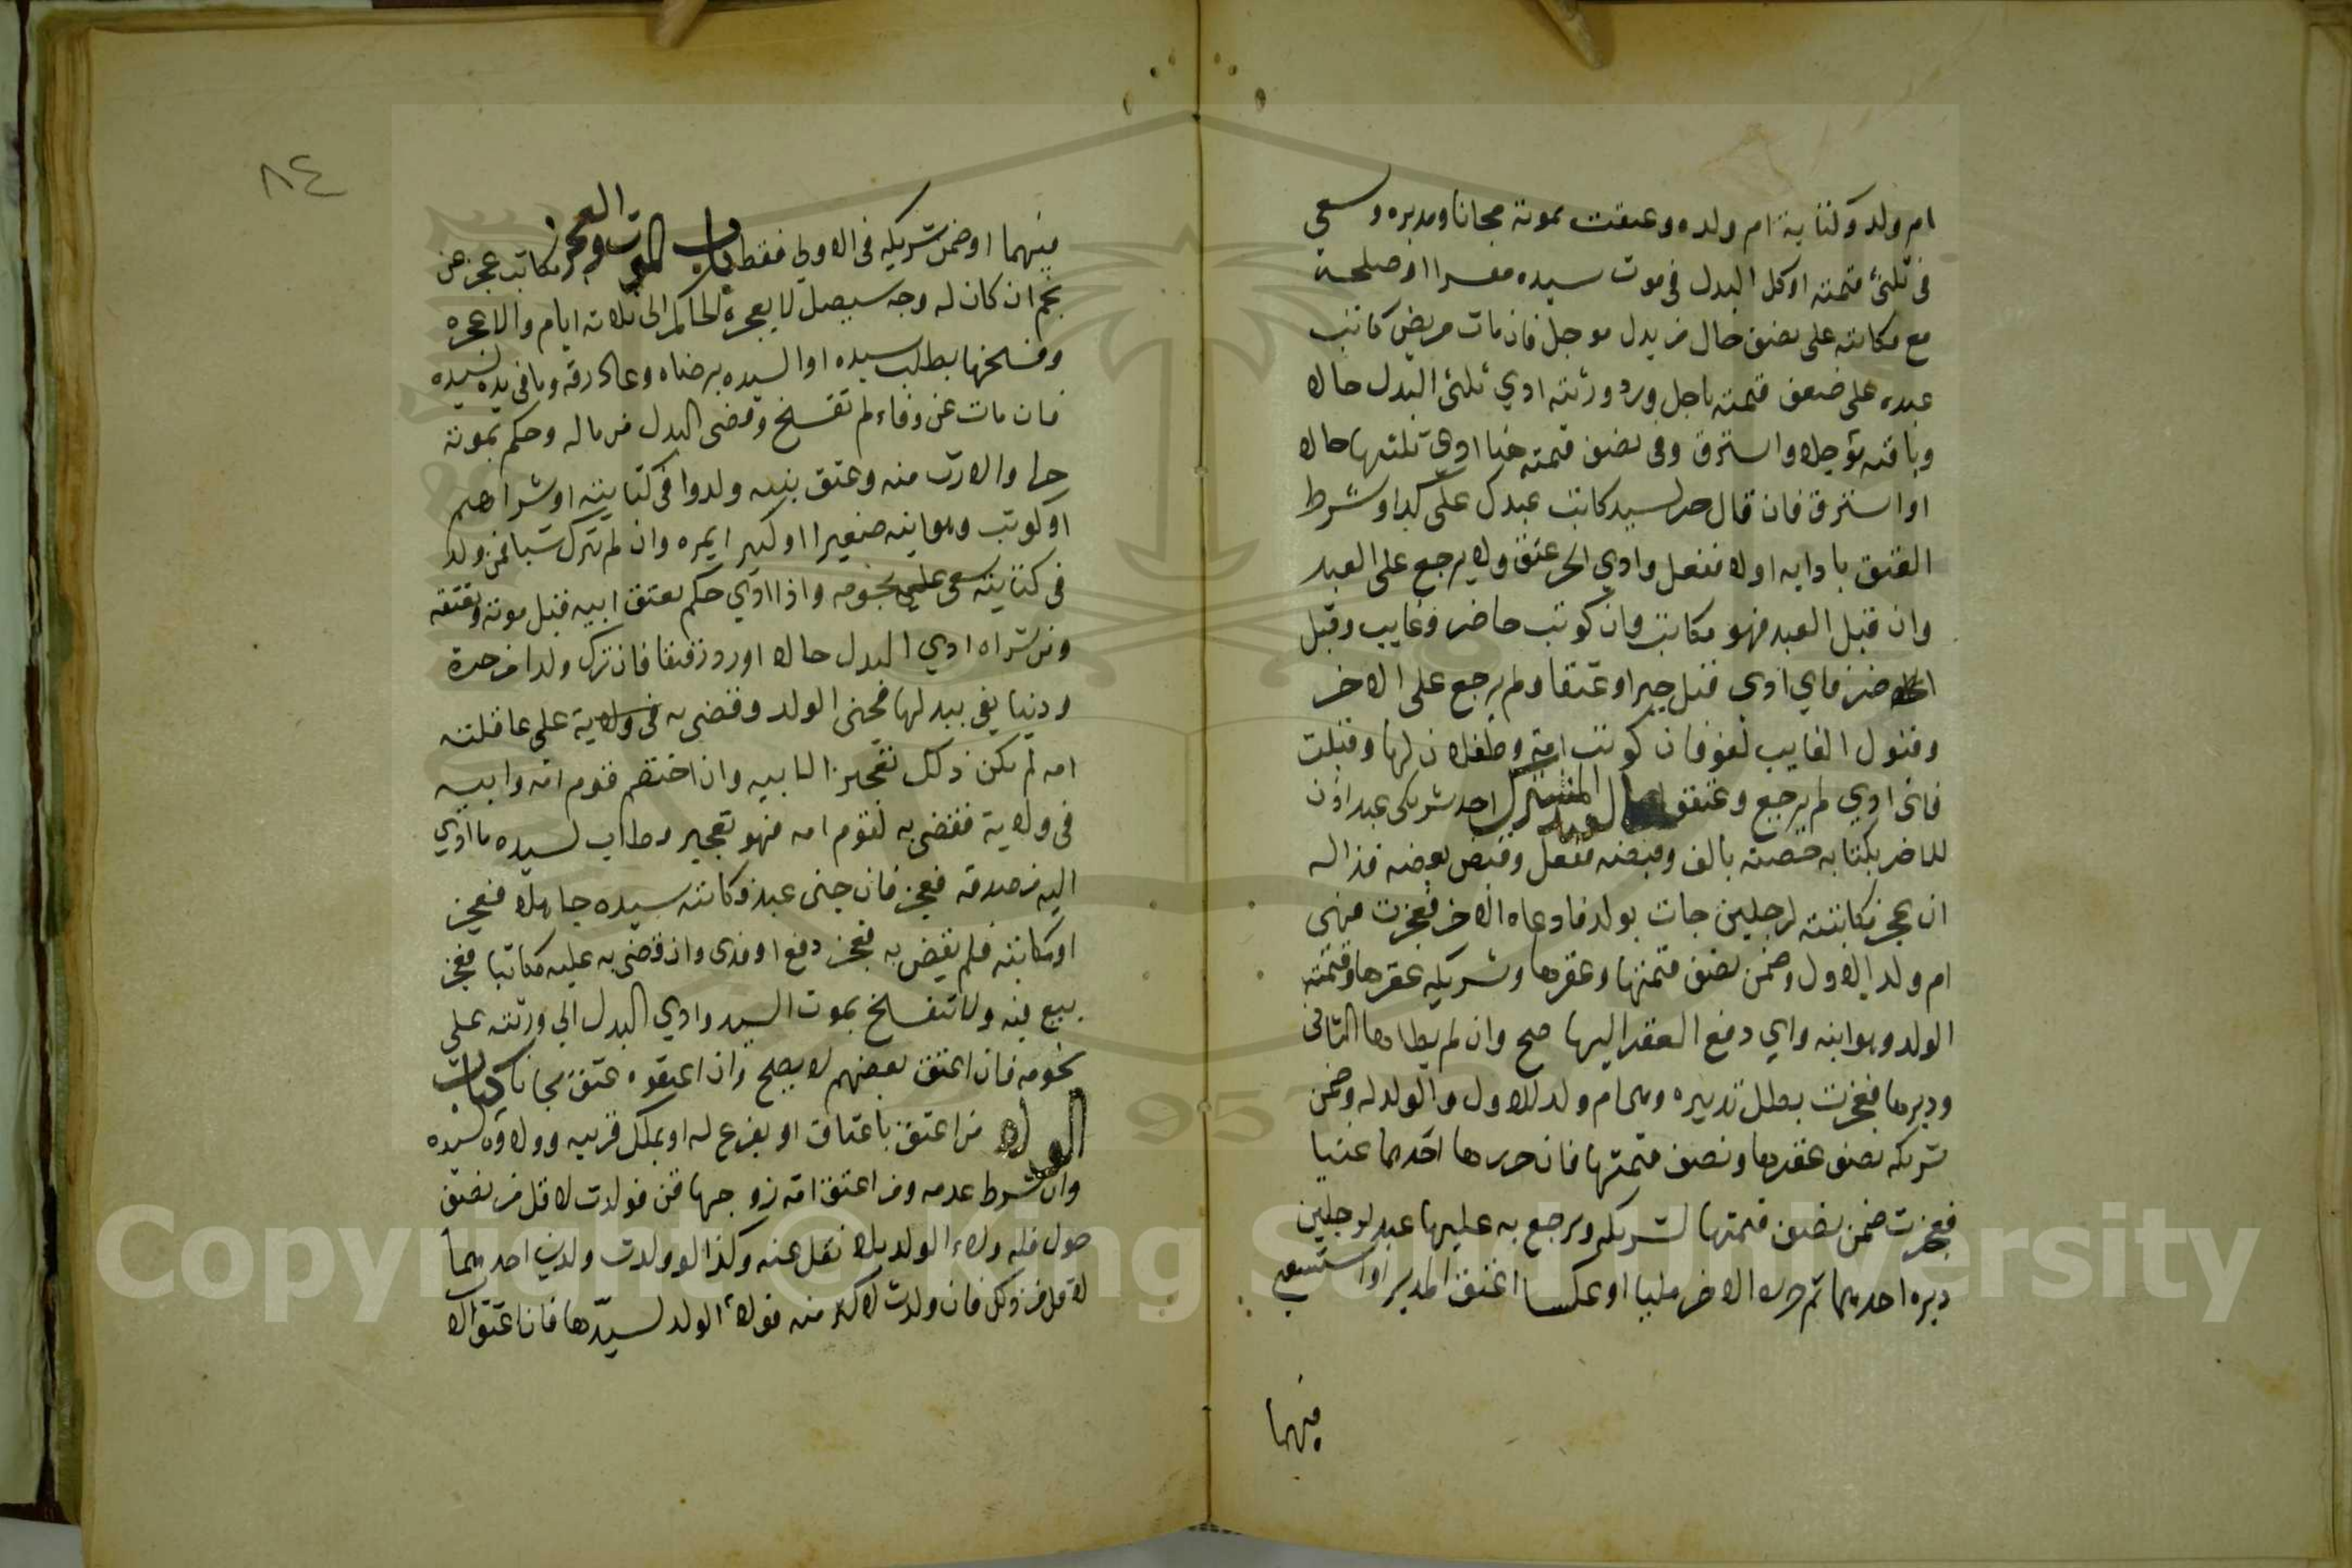 ام ولد وكتابة ام ولده وعتقت بموته مجانا ومدبره وسعى
فى ثلثى قيمته او كل البدل فى موت سيده معسرا او صلحه
مع مكاتبه على نصف حال من بدل موجل فان مات مريض كاتب
عبده على ضعف قيمته باجل ورد ورثته ادي ثلثى البدل حالا
وباقيه مؤجلا واسترق وفى نصف قيمته هنا ادى ثلثيها حالا
او استرق فان قال حر لسيد كاتب عبدك على كذا وشرط
العتق بادايه اولا ففعل وادي الحر عتق ولا يرجع على العبد
وان قبل العبد فهو مكاتب وان كوتب حاضر وغايب وقبل
الحاضر فاي ادى قبل جبرا وعتقا ولم يرجع على الاخر
وقبول الغايب لغو فان كوتبت امة وطفلان لها وقبلت
فاى ادي لم يرجع وعتقوا العبد المشترك احد شريكى عبد اذن
للاخر بكتابه حصته بالف وقبضه ففعل وقبض بعضه فذا له
ان عجز مكاتبته لرجلين جات بولد فادعاه الاخر فعجزت فهى
ام ولد للاول وضمن نصف قيمتها وعقرها وشريكه عقرها وقيمته
الولد وهو ابنه واي دفع العقر اليها صح وان لم يطاها الثانى
ودبرها فعجزت بطل تدبيره وهى ام ولد للاول والولد له وضمن
شريكه نصف عقرها ونصف قيمتها فان حررها احدهما غنيا
فعجزت ضمن نصف قيمتها لشريكه ويرجع به عليها عبد لرجلين
دبره احدهما ثم حرره الاخر مليا او عكسا اعتق المدبر او استسعى
فيهما
٨٤
فيهما او ضمن شريكه فى الاولى فقط باب الموت والعجز مكاتب عجز عن
نجم ان كان له وجه سيصل لا يعجزه الحاكم الى ثلاثة ايام والا عجزه
وفسخها بطلب سيده او السيده برضاه وعاد رقه وما فى يده لسيده
فان مات عن وفاء لم تفسخ وقضى البدل من ماله وحكم بموته
حرا والارث منه وعتق بنيه ولدوا فى كتابته او شراهم
او كوتب وهو ابنه صغيرا او كبيرا بمره وان لم يترك شيا فمن ولد
فى كتابته سعى على نجومه واذا ادى حكم بعتق ابيه قبل موته وبعتقه
ومن شراه ادي البدل حالا او رد رقيقا فان ترك ولدا من حرة
ودينا يفى ببدلها فجنى الولد وقضى به فى ولاية على عاقلته
امه لم يكن ذلك تعجيزا لابيه وان اختصم قوم امه وابيه
فى ولاية فقضى به لقوم امه فهو تعجيز وطاب لسيده ما ادي
اليه من صدقه فعجز فان جنى عبد فكاتبه سيده جاهلا فعجز
او مكاتبه فلم يقض به فعجز دفع او فدى وان قضى به عليه مكاتبا فعجز
بيع فيه ولا تنفسخ بموت السيد وادي البدل الى ورثته على
نجومه فان اعتق بعضهم لا يصح وان اعتقوه عتق مجانا كتاب
الولاء من اعتق باعتاق او بفرع له او بملك قريبه وولاؤه لسيده
وان شرط عدمه ومن اعتق امه زوجها قن فولدت لاقل من نصف
حول فله ولاء الولد بلا نقل عنه وكذا لو ولدت ولدين احدهما
لاقل من ذلك فان ولدت لاكثر منه فولاء الولد لسيدها فان اعتق الا